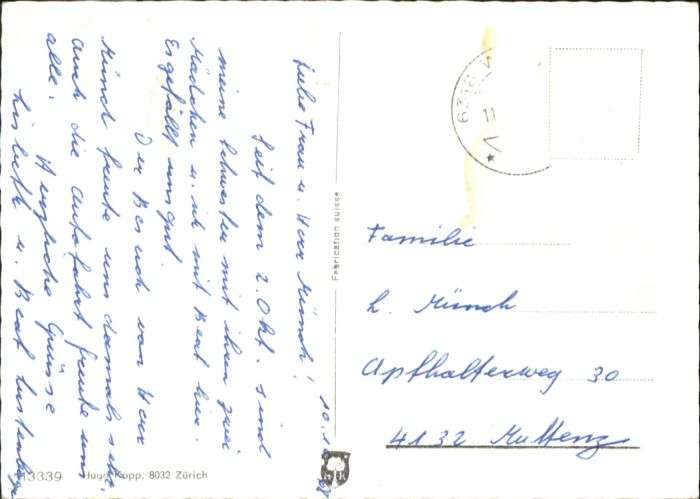 10.10.
Liebe Frau u. Herr Münch!
Seit dem 2. Okt. sind
meine Schwester mit ihren zwei
Mädchen u. ich mit Beat hier.
Es gefällt uns gut.
Der Besuch von Herr
Münch freute uns damals sehr.
Auch die Autofahrt freute uns
alle.
Herzliche Grüsse
u. Beat
Fabrication suisse
Familie
h. Münch
Apfhalterweg 30
4132 Muttenz
13339 Hugo Kopp, 8032 Zürich